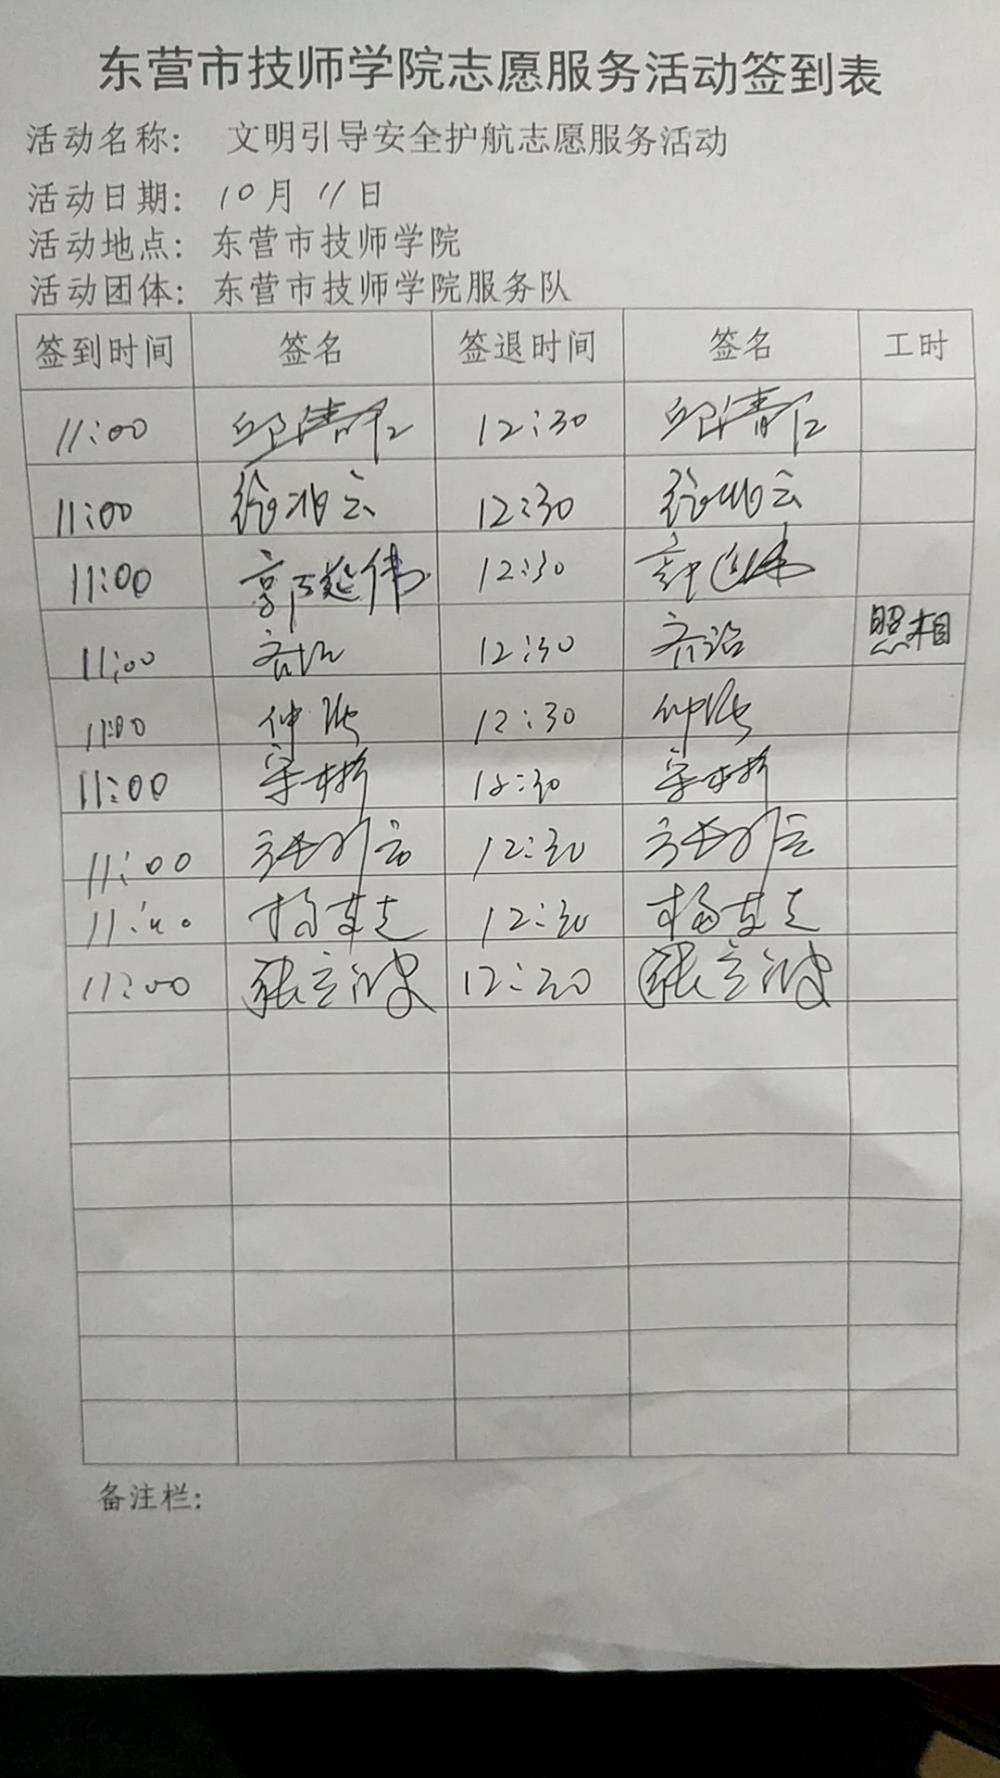 东营市技师学院志愿服务活动签到表
活动名称: 文明引导安全护航志愿服务活动
活动日期: 10月 11日
活动地点: 东营市技师学院
活动团体: 东营市技师学院服务队
签到时间 签名 签退时间 签名 工时
11:00 邱清 12:30 邱清
11:00 徐兆云 12:30 徐兆云
11:00 郭延伟 12:30 郭延伟
11:00 齐 12:30 齐 照相
11:00 仲 12:30 仲
11:00 12:30
11:00 张 12:30 张
11:00 杨 12:30 杨
11:00 张立波 12:30 张立波
备注栏: